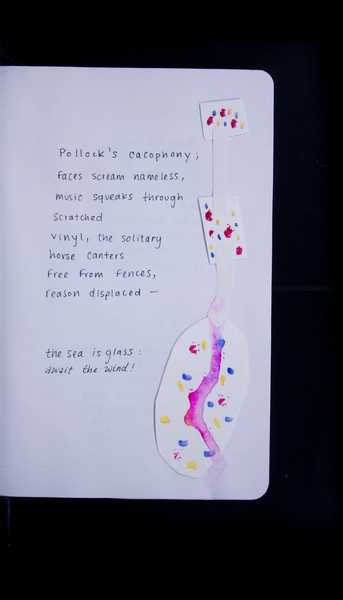 Pollock's cacophony;
faces scream nameless,
music squeaks through
scratched
vinyl, the solitary
horse canters
free from fences,
reason displaced —
the sea is glass:
await the wind!